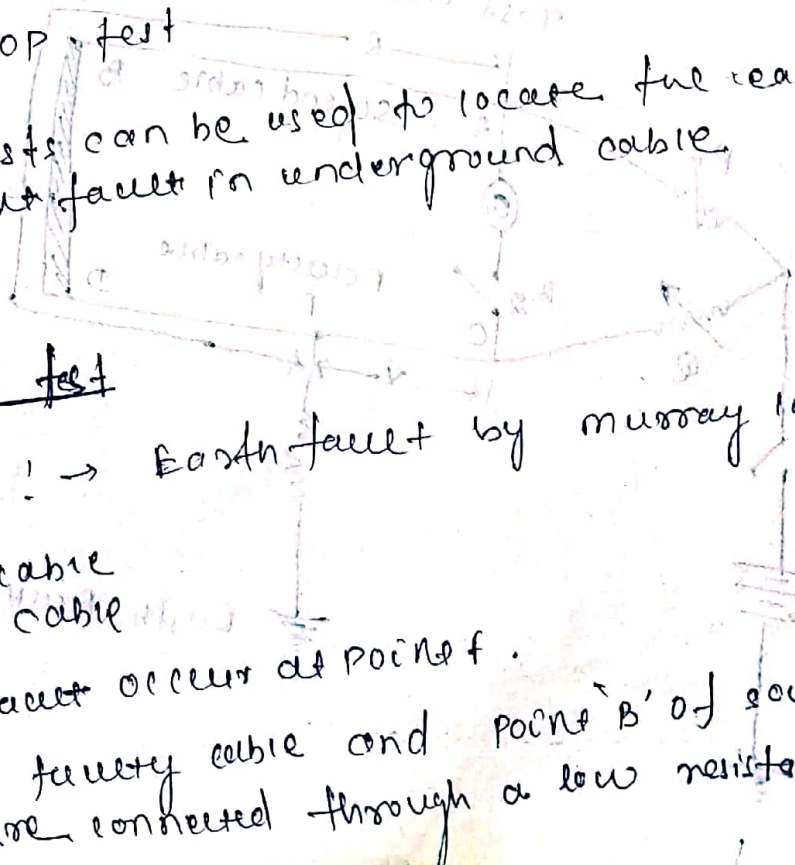 OP test
sts can be used to locate the ea
ut fault in underground cable
test
! → Earth fault by murray l
cable
cable
ault occur at point f.
faulty cable and point 'B' of sou
are connected through a low resista